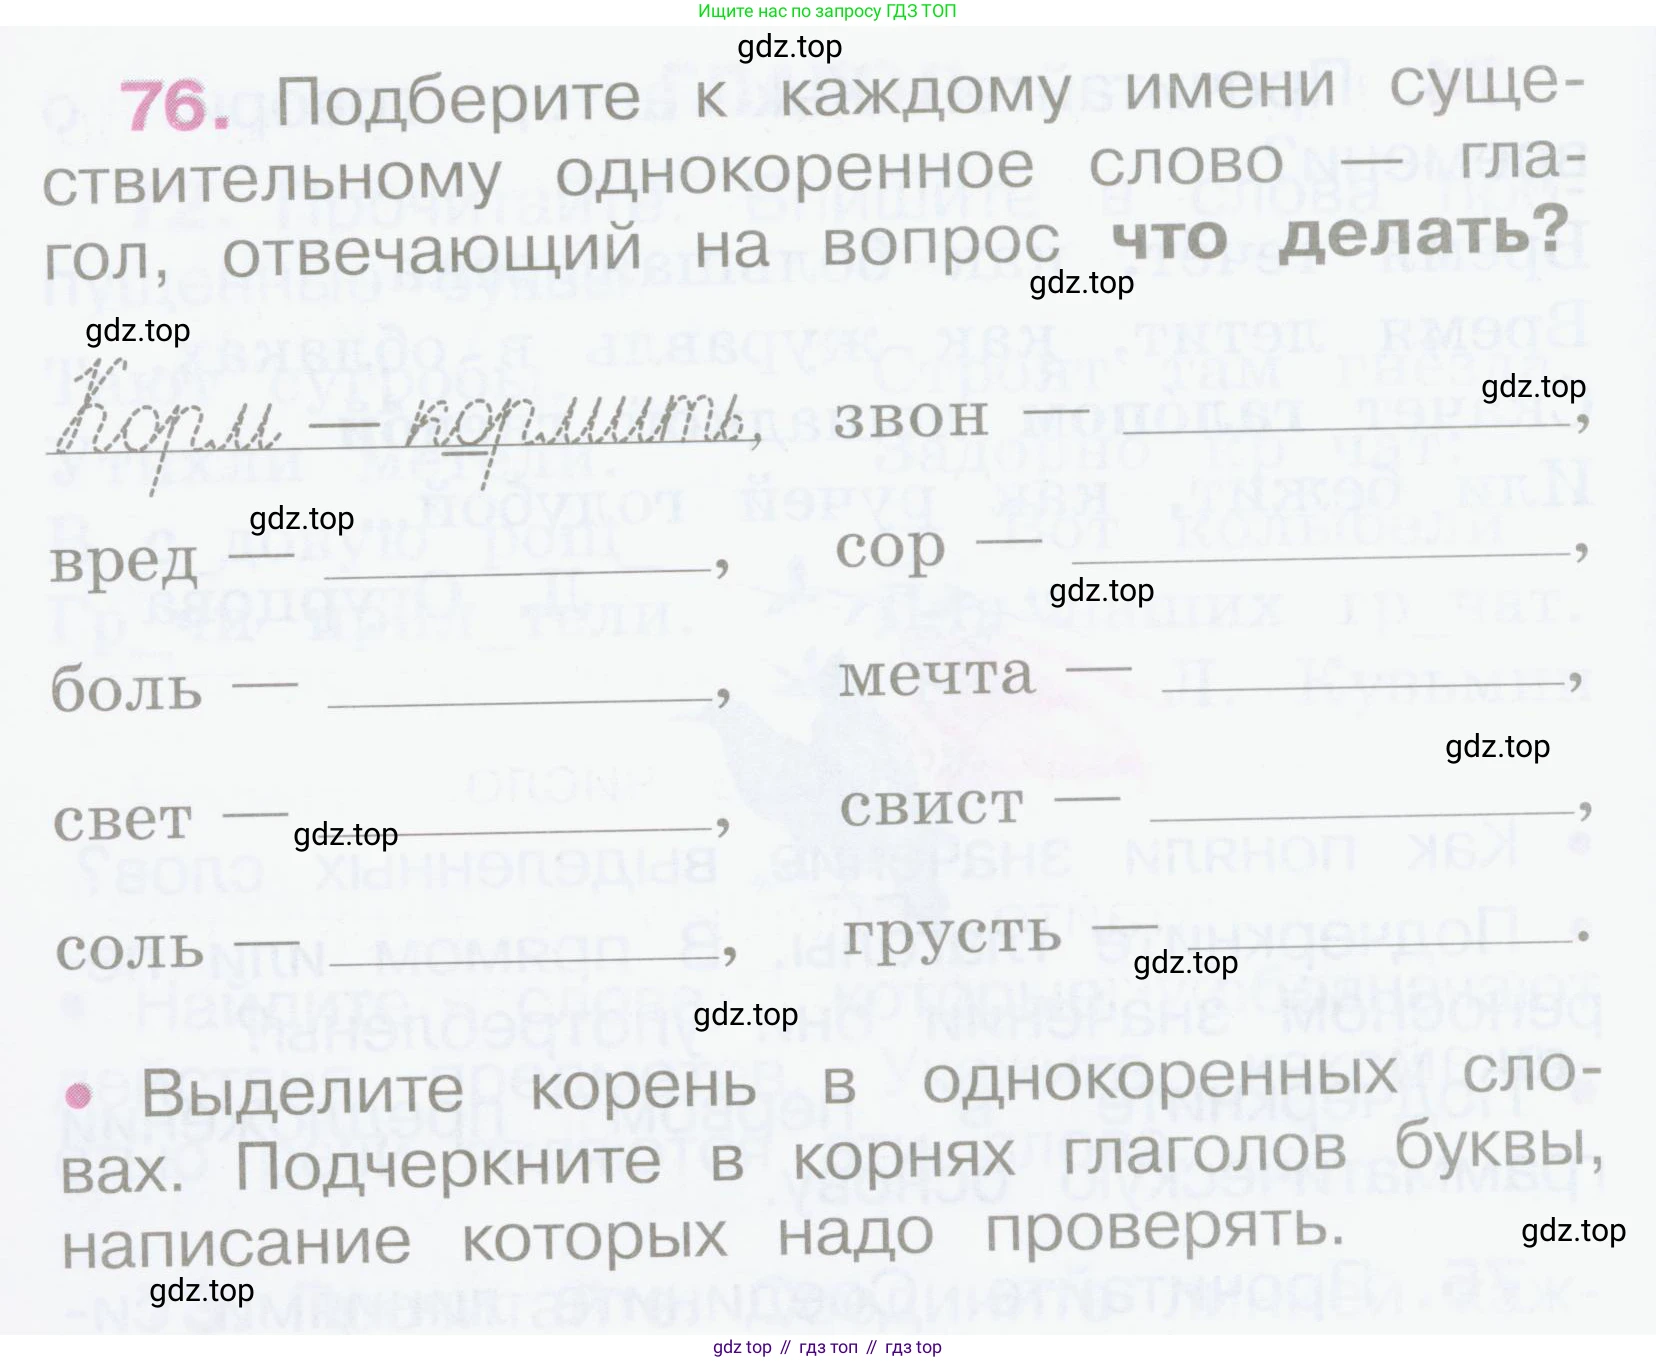 Ищите нас по запросу ГДЗ ТОП
gdz.top
76. Подберите к каждому имени суще-
ствительному однокоренное слово — гла-
гол, отвечающий на вопрос что делать?
gdz.top
gdz.top
gdz.top
Корм — кормить, звон — ,
gdz.top
вред — , сор — ,
gdz.top
боль — , мечта — ,
gdz.top
свет — , свист — ,
gdz.top
соль — , грусть — .
gdz.top
gdz.top
• Выделите корень в однокоренных сло-
вах. Подчеркните в корнях глаголов буквы,
написание которых надо проверять.
gdz.top
gdz.top
gdz top // гдз топ // гдз top